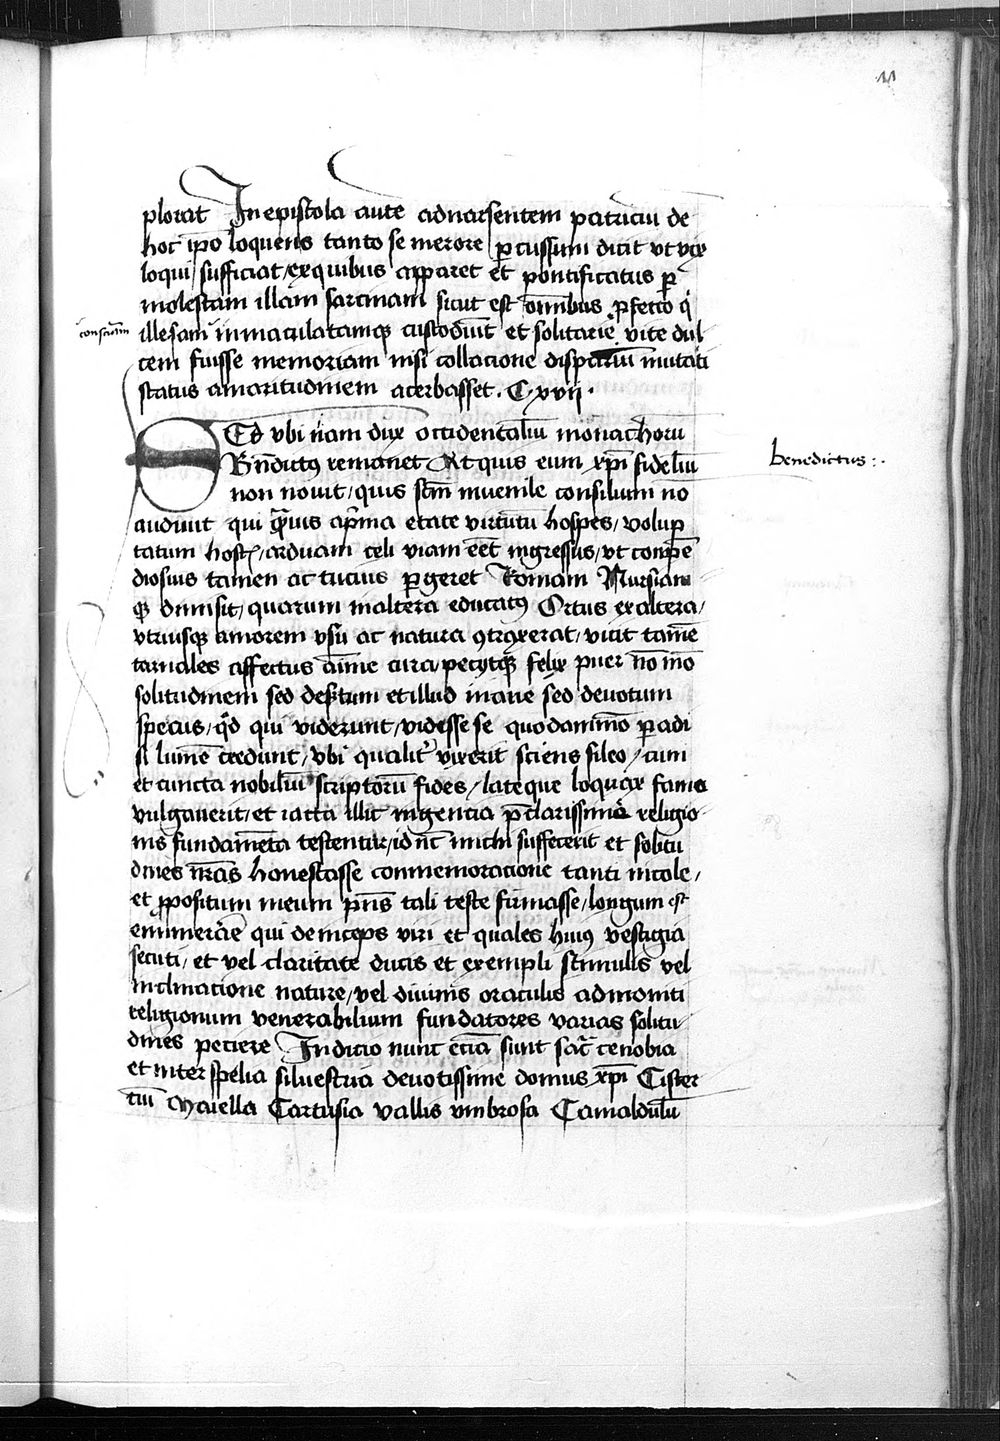 11
plorat In epistola autē ad narsentem patriciū de
hoc ip̄o loquens tanto se merore ꝑcussum dicit vt vix
loqui sufficiat / ex quibus apparet et pontificatus ꝑ
molestam illam sarcinam sicut est om̄ibus ꝑfecto q̄
ꝯscīam
illesam īnmaculatamqꝫ custodiūt et solitarie vite dul
cem fuisse memoriam nisi collacione disparium mutati
status amaritudinem acerbasset . C xvii .
SEd vbi nām dux occidentaliū monachorū
Bn̄dictꝰ remanet At quis eum xp̄i fideliū
benedictus :.
non nouit / quis sc̄m iuuenile consilium nō
audiuit qui q̄uis a p̄ma etate virtutū hospes / volup
tatum hostis / arduam celi viam eēt ingressus / vt conpē
diosius tamen ac tucius ꝑgeret Romam Nursiam
qꝫ dimisit / quarum in altera educatꝰ Ortus ex altera /
vtriusqꝫ amorem vsu ac natura ꝯtraxerat / vicit tamē
carnales affectus aīme cura / pecijtqꝫ felix puer nō mō
solitudinem sed desertum et illud inane sed deuotum
specus / qd̄ qui viderunt / videsse se quodammō paradi
si lumē credunt / vbi qualit̓ vixerit sciens sileo / cum
et cuncta nobiliū scriptorū fides / lateque loquax fama
vulgauerit / et iacta illic ingencia p̄clarissimā religio
nis fundamēta testentur / id nc̄ michi suffecerit et solitu
dines nr̄as honestasse conmemoracione tanti incole /
et ꝓpositum meum pn̄s tali teste firmasse / longum est
enumerare qui deinceps viri et quales huiꝰ vestigia
secuti / et vel claritate ducis et exempli stimulis vel
inclinacione nature / vel diuinis oraculis admoniti
religionum venerabilium fundatores varias solitu
dines peciere Indicio nunc eciā sunt sac̄ cenobia
et inter spelia siluestria deuotissime domus xp̄i Cister
ciū Maiella Cartusia vallis vmbrosa Camaldulū